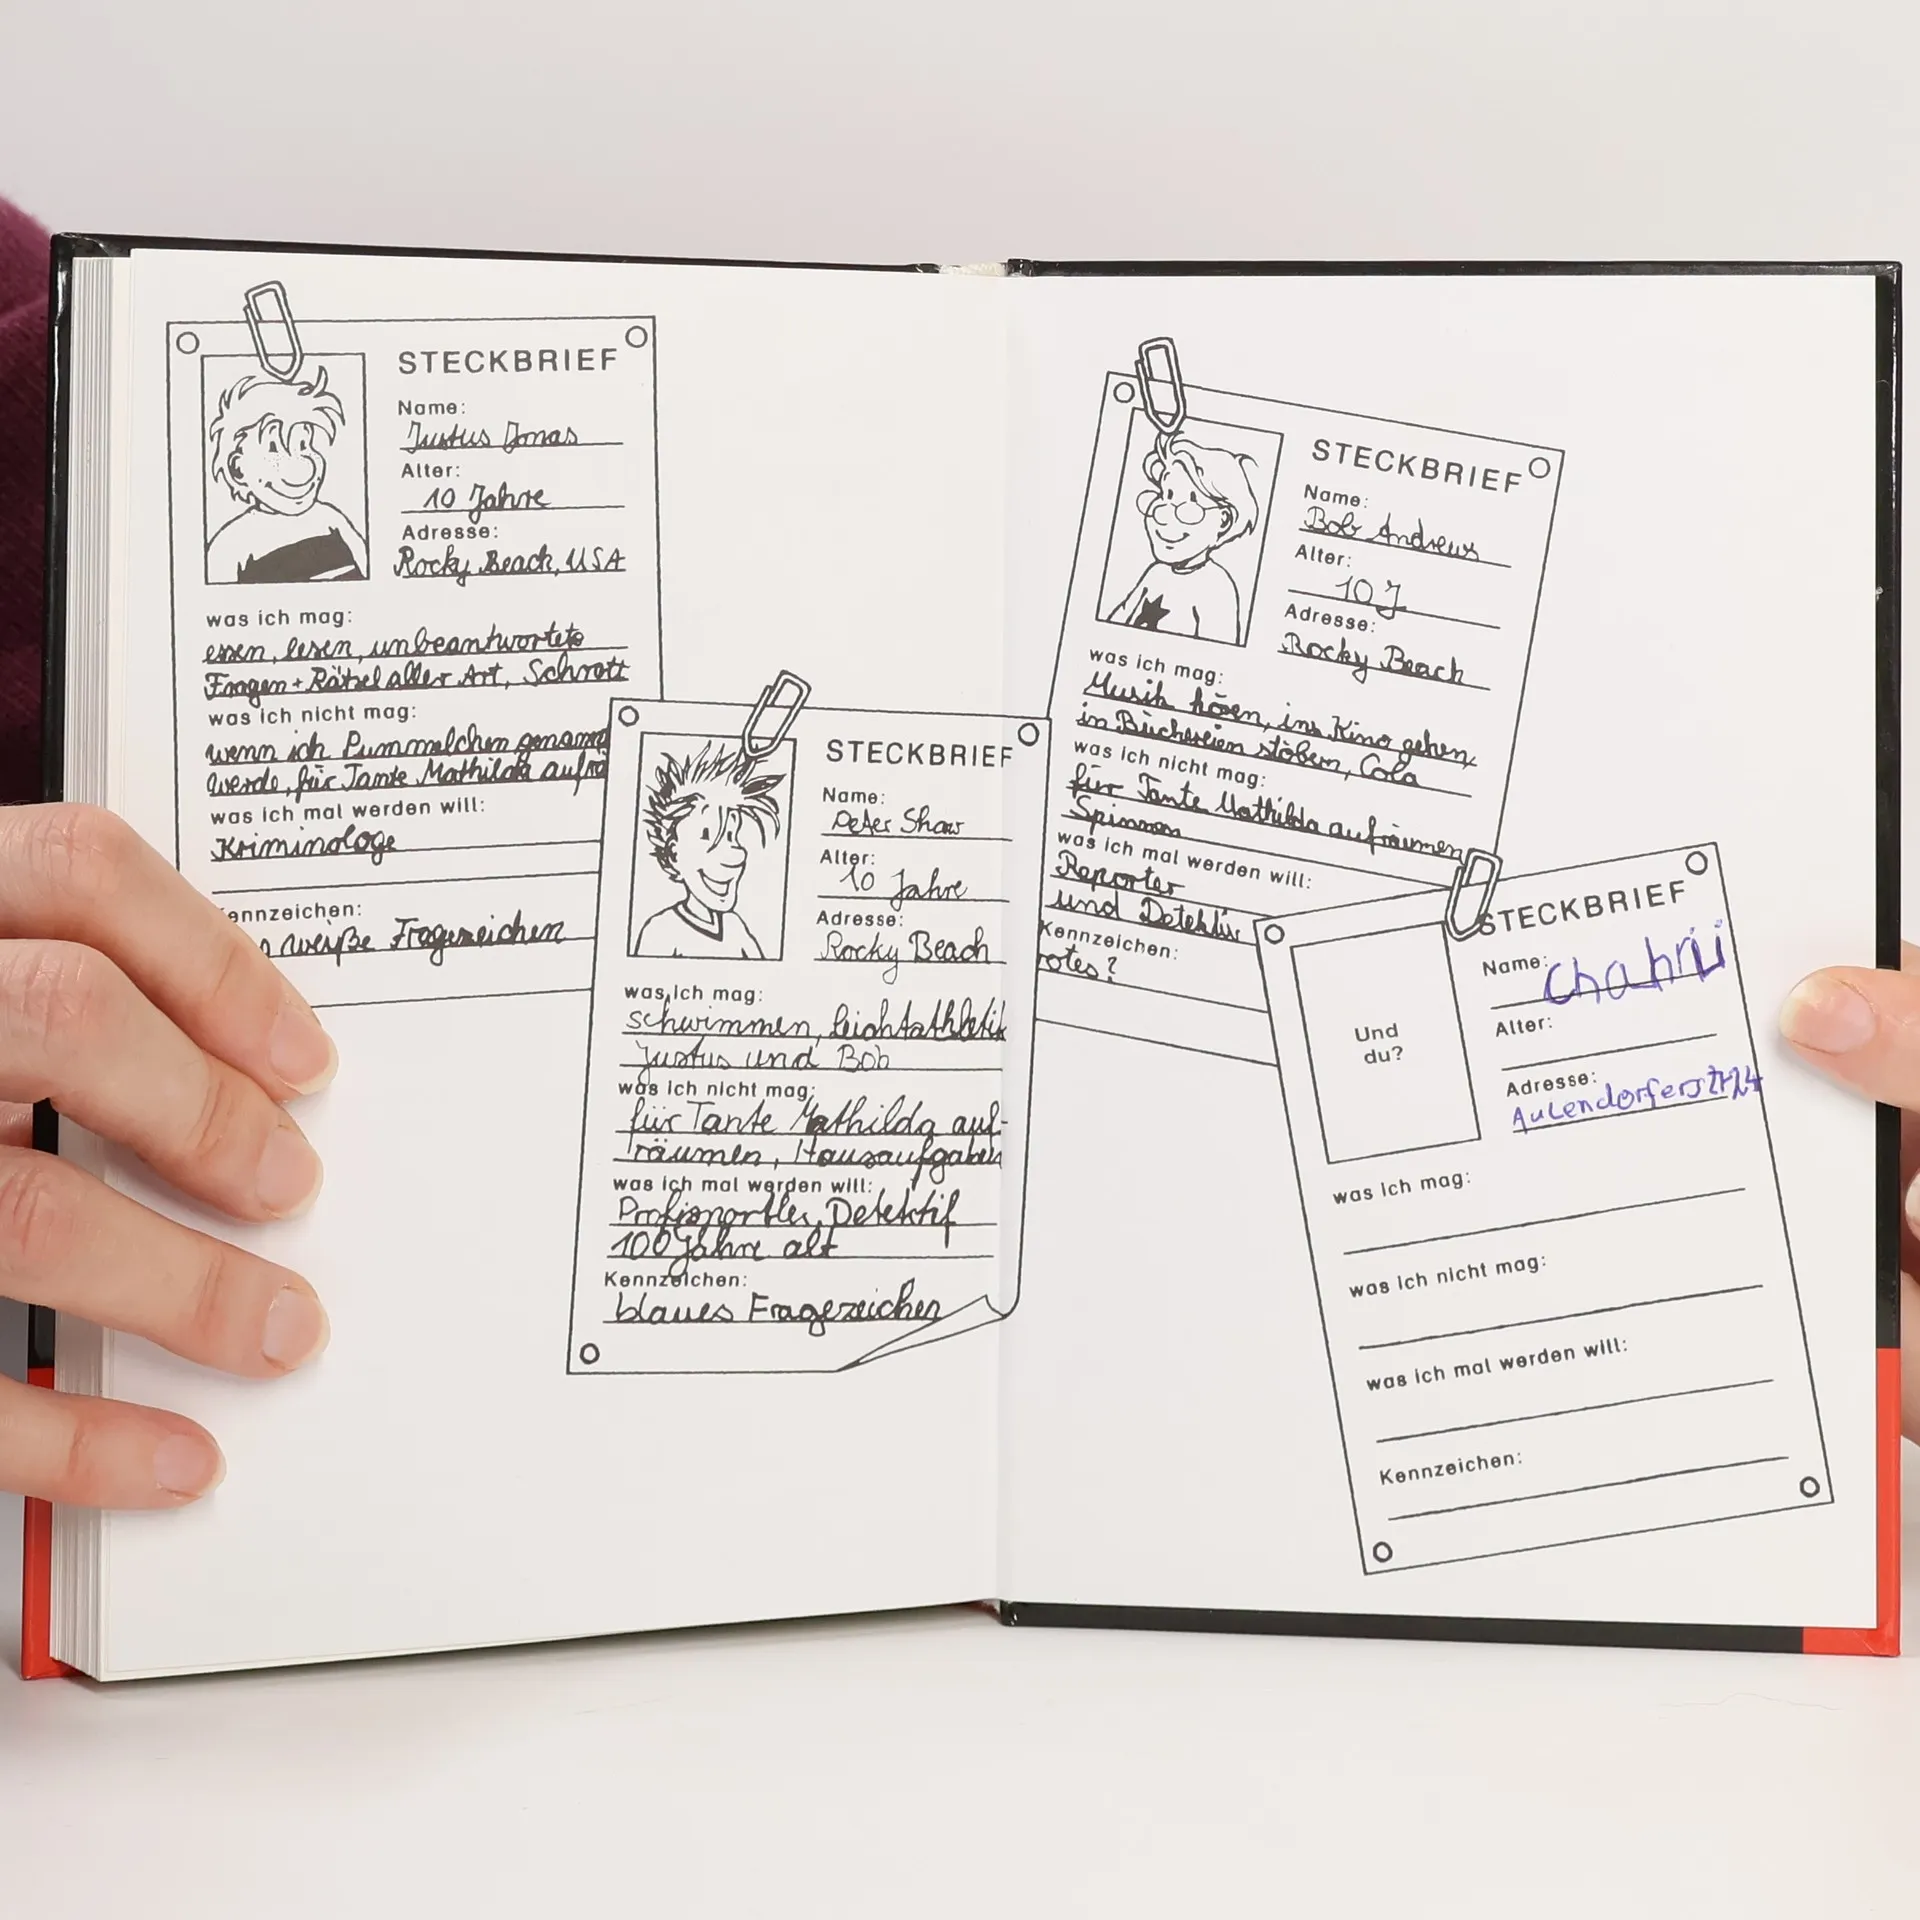 STECKBRIEF
Name:
Justus Jonas
Alter:
10 Jahre
Adresse:
Rocky Beach, USA
was ich mag:
essen, lesen, unbeantwortete
Fragen + Rätsel aller Art, Schrott
was ich nicht mag:
wenn ich Pummelchen genannt
werde, für Tante Mathilda aufrä
was ich mal werden will:
Kriminologe
ennzeichen:
weiße Fragezeichen
STECKBRIEF
Name:
Peter Shaw
Alter:
10 Jahre
Adresse:
Rocky Beach
was ich mag:
schwimmen, leichtathletik
Justus und Bob
was ich nicht mag:
für Tante Mathilda auf-
räumen, Hausaufgaben
was ich mal werden will:
Profisportler, Detektif
100 Jahre alt
Kennzeichen:
blaues Fragezeichen
STECKBRIEF
Name:
Bob Andrews
Alter:
10 J
Adresse:
Rocky Beach
was ich mag:
Musik hören, ins Kino gehen,
in Büchereien stöbern, Cola
was ich nicht mag:
für Tante Mathilda aufräumen
Spinnen
was ich mal werden will:
Reporter
und Detektiv
Kennzeichen:
rotes ?
STECKBRIEF
Und
du?
Name:
Alter:
Adresse:
was ich mag:
was ich nicht mag:
was ich mal werden will:
Kennzeichen: